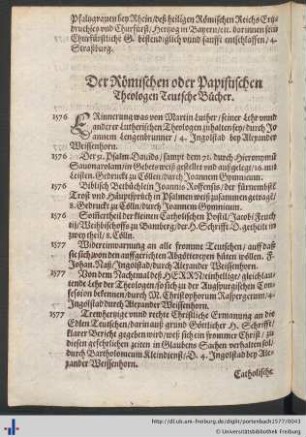 Pfaltzgrauen bey Rhein/deß heiligen Römischen Reichs Ertz
druchses vnd Churfürst/Hertzog in Bayern/etc. darinnen sein
Churfürstliche G. bestendiglich vnnd sanfft entschlaffen/4.
Straßburg.
Der Römischen oder Papistischen
Theologen Teutsche Bücher.
1576 ERinnerung was von Martin Luther/seiner Lehr vnnd
anderer Lutherischen Theologen zuhalten sey/durch Jo
annem Lengenbrunner/4. Ingolstad bey Alexander
Weissenhorn.
1576 Der 51. Psalm Dauids/sampt dem 71. durch Hieronymũ
Sauonarolam/in Gebets weiß gestellet vnd außgelegt/16. mit
Leisten. Gedruckt zu Cölln/durch Joannem Gymnicum.
1576 Biblisch Betbüchlein Joannis Roffensis/der fürnembst
Trost vnd Hülffsprüch in Psalmen weiß zusammen getragt/
8. Gedruckt zu Cölln/durch Joannem Gymnicum.
1576 Sommertheil der kleinen Catholischen Postil/Jacobi Feuch
tij/Weihbischoffs zu Bamberg/der H. Schrifft D. getheilt in
zwey theil/8. Cölln.
1577 Widereinwarnung an alle fromme Teutschen/auff daß
sie sich von den auffgerichten Abgöttereyen hüten wöllen. F.
Johan. Naß/Ingolstad/durch Alexander Weissenhorn.
1577 Von dem Nachtmal deß HERRN einhellige/gleichlau
tende Lehr der Theologen/so sich zu der Augspurgischen Con
fession bekennen/durch M. Christophorum Raspergerum/4.
Ingolstad durch Alexander Weissenhorn.
1577 Trewhertzige vnnd rechte Christliche Ermanung an die
Edlen Teutschen/darin auß grund Göttlicher H. Schrifft/
klarer Bericht gegeben wird/weß sich ein frommer Christ/zu
diesen gefehrlichen zeiten in Glaubens Sachen verhalten sol/
durch Bartholomeum Kleindienst/D. 4. Ingolstad bey Ale-
xander Weissenhorn.
Catholische
http://dl.ub.uni-freiburg.de/diglit/portenbach1577/0043
© Universitätsbibliothek Freiburg